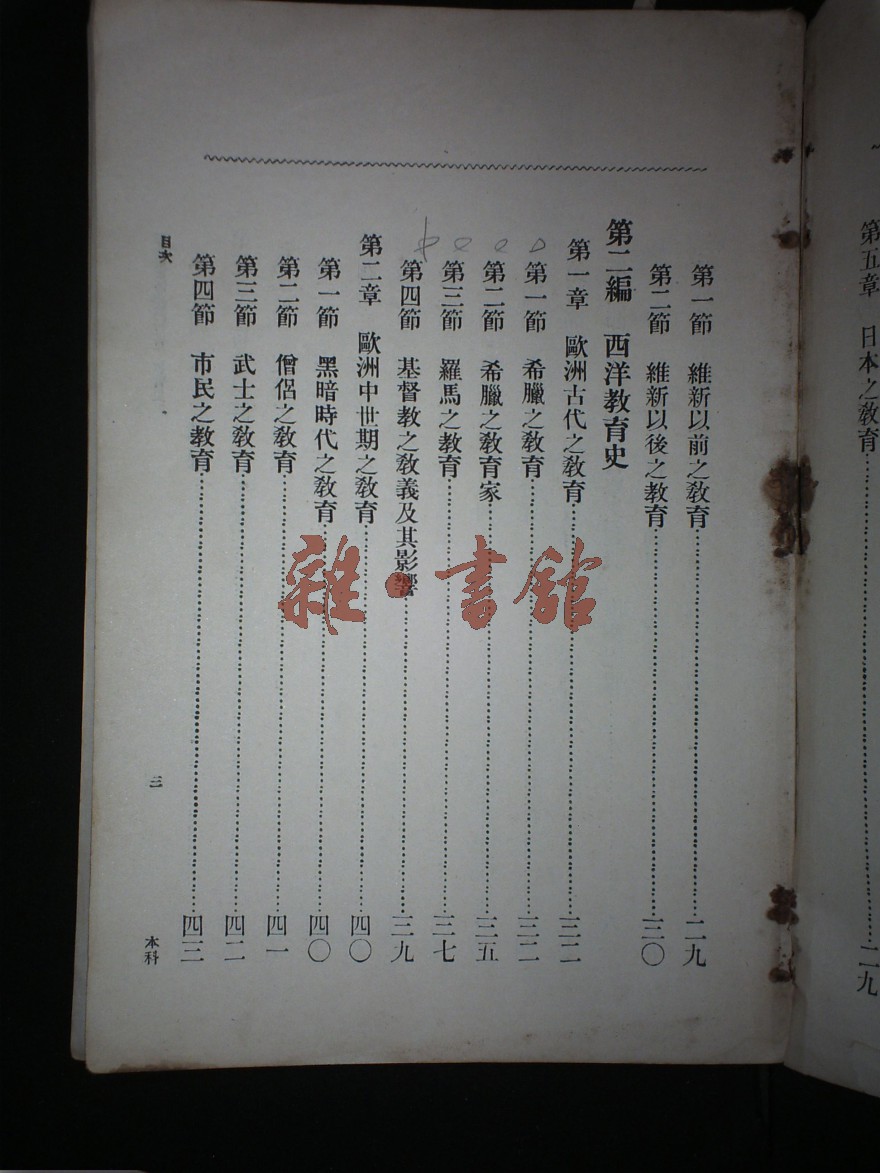 第五章　日本之敎育……二九
第一節　維新以前之敎育……二九
第二節　維新以後之敎育……三〇
第二編　西洋敎育史
第一章　歐洲古代之敎育……三二
第一節　希臘之敎育……三二
第二節　希臘之敎育家……三五
第三節　羅馬之敎育……三七
第四節　基督敎之敎義及其影響……三九
第二章　歐洲中世期之敎育……四〇
第一節　黑暗時代之敎育……四〇
第二節　僧侶之敎育……四一
第三節　武士之敎育……四二
第四節　市民之敎育……四三
目次
三
本科
雜·書館